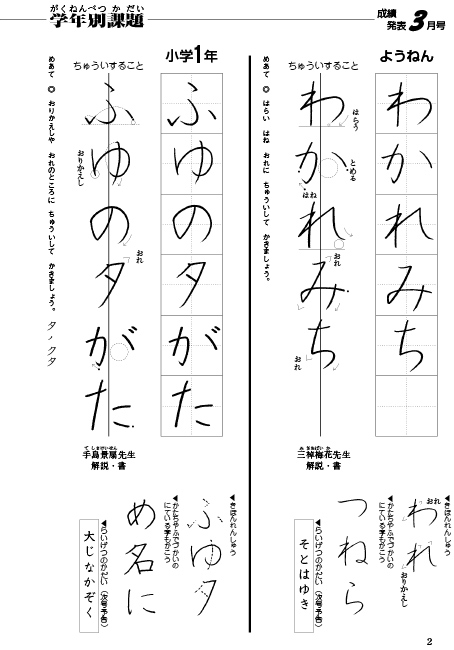 がくねんべつ か だい
学年別課題
成績
発表3月号
ようねん
わかれみち
ちゅういすること
わかれみち
はらう
とめる
はね
おれ
おれ
めあて ◎ はらい はね おれに ちゅういして かきましょう。
三禕梅花先生
解説・書
◀きほんれんしゅう
われ
おれ
おりかえし
◀かたちやふでづかいの
にている字もかこう
つねら
◀らいげつのかだい(次号予告)
そとはゆき
小学1年
ふゆのタがた
ちゅういすること
ふゆのタがた
おりかえし
おれ
めあて ◎ おりかえしや おれのところに ちゅういして かきましょう。
タノクタ
てしまけいせん
手島景扇先生
解説・書
◀きほんれんしゅう
ふゆタ
◀かたちやふでづかいの
にている字もかこう
め名に
◀らいげつのかだい(次号予告)
大じなかぞく
2